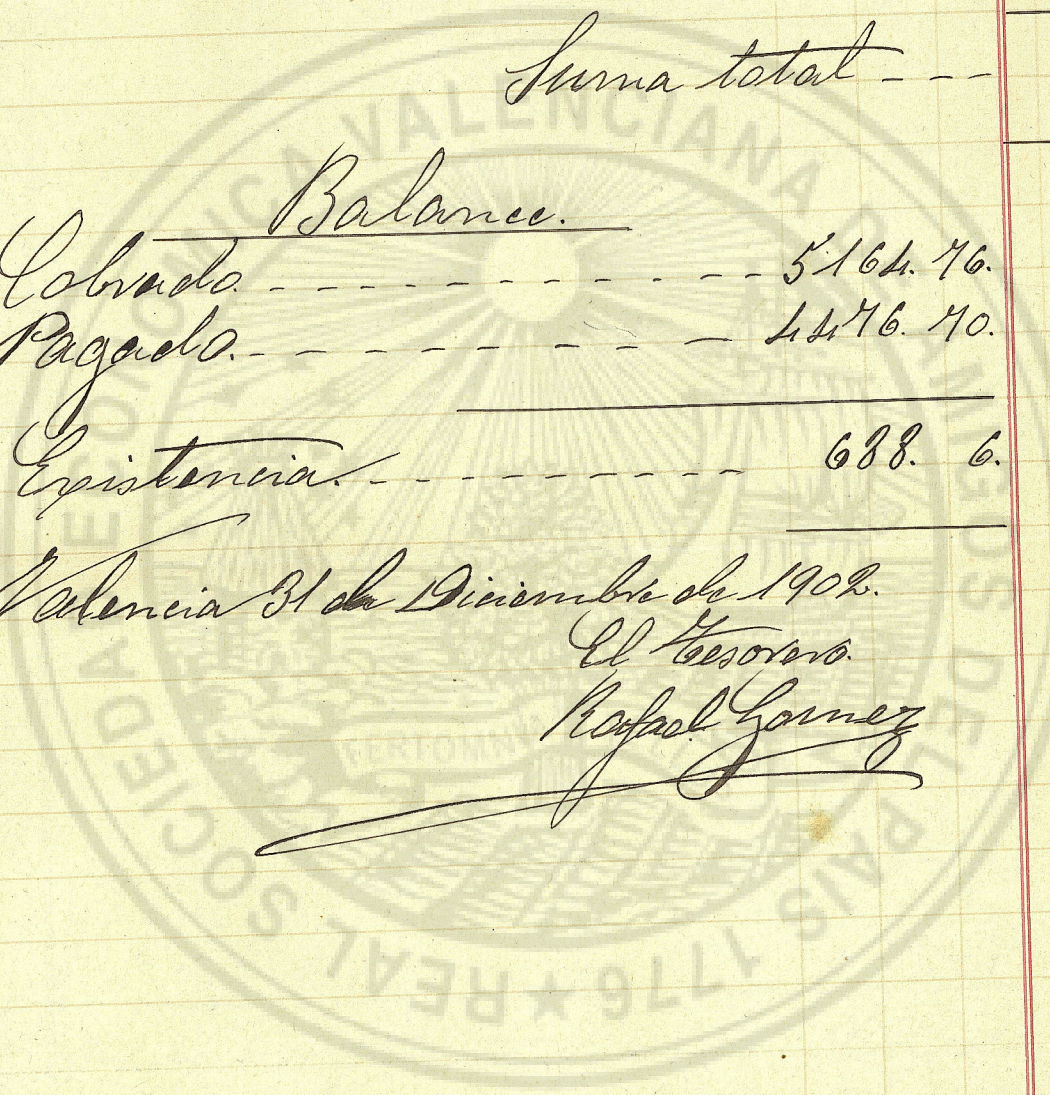 Suma total - - -
Balance.
Cobrado. - - - - - - - - - - - - 5164. 76.
Pagado. - - - - - - - - - - 4476. 70.
Existencia. - - - - - - - - - - 688. 6.
Valencia 31 de Diciembre de 1902.
El Tesorero.
Rafael
REAL SOCIEDAD ECONOMICA VALENCIANA DE AMIGOS DEL PAIS 1776 ★